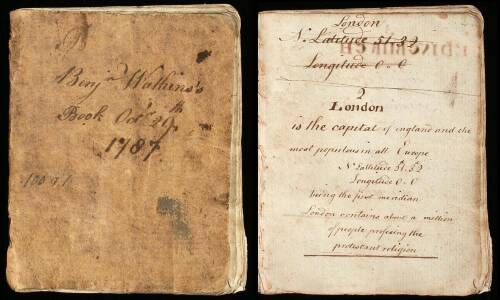 Benj Watkins's
Book Octr 29th
1787
London
N. Latitude 51.32
Longitude 0.0
2
London
is the capital of england and the
most populous in all Europe
N Lattitude 51.32
Longitude 0.0
being the first meridian
London contains about a million
of people profesing the
protestant religion